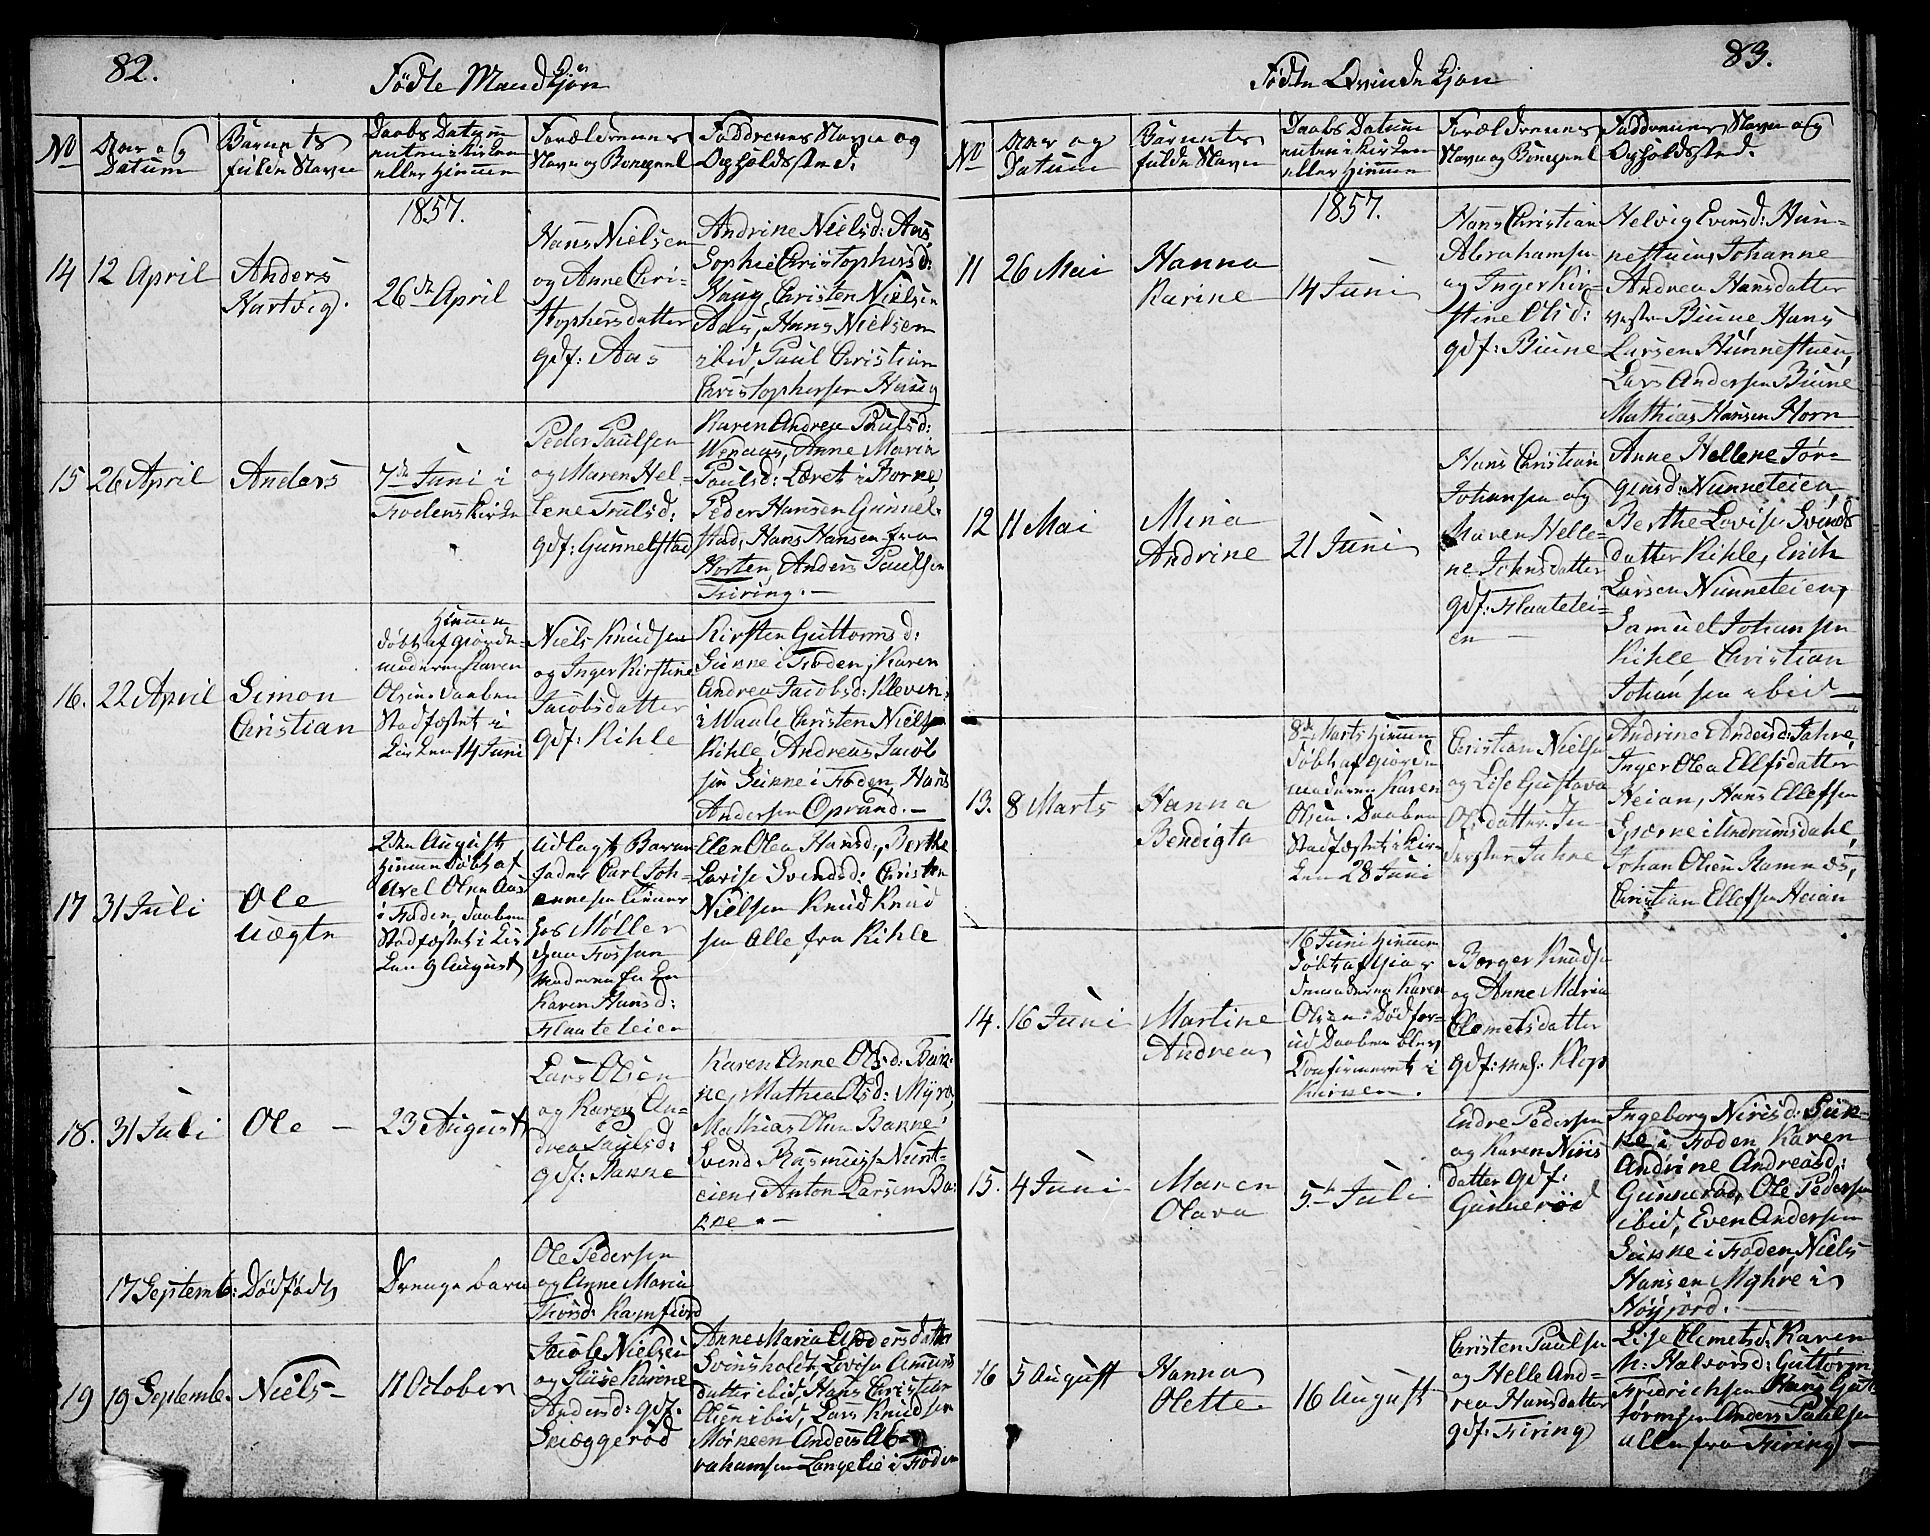 82.
Fødte Mandkjøn
No
Aar og
Datum
Barnets
fulde Navn
Daabs Datum
enten i Kirken
eller Hiemme
Forældrenes
Navn og Borgerl
Faddrenes Navn og
Opholdssted.
1857.
14
12 April
Anders
Hartvig.
26de April
Hans Nielsen
og Anne Chri-
stophersdatter
gdf: Aas
Andrine Nielsd: Aas,
Sophie Christophersd:
Haug, Christen Nielsen
Aas, Hans Nielsen
ibid, Paul Christian
Christophersen Haug
15
26 April
Anders
7de Juni i
Fodens Kirke
Peder Paulsen
og Maren Hel-
lene Trulsd:
gdf: Gunnelstad
Karen Andrea Paulsd:
Wenaas, Anne Maria
Paulsd: Læret i Borne,
Peder Hansen Gunnel-
stad, Hans Hansen fra
Horten, Anders Paulsen
Firing. –
16.
22 April
Simon
Christian
Hiemme
døbt af Giorde-
moderen Karen
Olsen. Daaben
Stadfæstet i
Kirken 14 Juni
Niels Knudsen
og Inger Kirstine
Jacobsdatter
gdf: Kihle
Kirsten Guttormsd:
Sukke i Foden, Karen
Andrea Jacobsd: Kleven
i Waale, Christen Nielsen
Kihle, Andreas Jacob
sen Sukke i Foden, Hans
Andersen Oprand. –
17
31 Juli
Ole
uægte
2den August
Hiemmedøbt af
Axel Olsen Aas
i Foden, Daaben
Stadfæstet i Kir
ken 9 August
Udlagt Barne
fader Carl Joh-
annesen Tienner
hos Møller
paa Fossan
moderen Pi En
Karen Hansd:
Flaateleien
Elen Olea Hansd:, Berthe
Lovise Svendsd: Christen
Nielsen Knud Knud
sen Alle fra Kihle
18.
31 Juli
Ole –
23 August
Lars Olsen
og Karen An-
drea Paulsd:
gdf: Bakke
Karen Anne Olsd: Bak-
ke, Mathea Olsd: Myra,
Mathias Olsen Bakke,
Svend Rasmussen Nunt-
eien, Anton Larsen Ba-
kke. –
17 Septemb:
Dødfødt
Drenge barn
Ole Pedersen
og Anne Maria
Thorsd: Kamfiord
19
19 Septembe.
Niels –
11 October
Jacob Nielsen
og Elise Karine
Andersd: gdf.
Skiæggerød
Anne Maria Andersdatter
Svinsholdt, Lovise Amunds
datter ibid, Hans Christian
Olsen ibid, Lars Knudsen
Mørkeen Anders Ab-
rahamsen Langelie i Foden
83.
Fødte Qvindekjøn
No
Aar og
Datum
Barnets
fulde Navn
Daabs Datum
enten i Kirken
eller Hiemme
Forældrenes
Navn og Borgerl
Faddrenes Navn og
Opholdssted.
1857.
11
26 Mai
Hanna
Karine
14 Juni
Hans Christian
Abrahamsen
og Inger Kir-
stine Olsd:
gdf: Biune
Helvig Evensd: Hun-
nestuen, Johanne
Andrea Hansdatter
vestre Biune, Hans
Larsen Hunnestuen,
Lars Andersen Biune
Mathias Hansen Horn
12
11 Mai
Mina
Andrine
21 Juni
Hans Christian
Johansen og
Maren Helle-
ne Johnsdatter
gdf: Flaatelei-
en –
Anne Hellene Jør-
gensd: Nunneteien,
Berthe Lovise Svends
datter Kihle, Erich
Larsen Nunneteien,
Samuel Johansen
Kihle Christian
Johansen ibid –
13.
8 Marts
Hanna
Bendigta
8de Marts Hiemme
døbt af Giorde
moderen Karen
Olsen. Daaben
Stadfæstet i Kir-
ken 28 Juni
Christian Nielsen
og Lise Gustava
Olsdatter In-
derster Jahre
Andrine Andersd: Jahre,
Inger Olea Ellefsdatter
Heian, Hans Ellefsen
Spærne i Andrumsdahl,
Johan Olsen Ramnæs,
Christian Ellefsen Heian
14.
16 Juni
Martine
Andrea
16 Juni Hiemme
døbt af Gior
demoderen Karen
Olsen. Død for-
ud Daaben blev
Confirmeret i
Kirken.
Borger Knudsen
og Anne Maria
Clemetsdatter
gdf: mh: Klop
15.
4 Juni
Maren
Olava
5te Juli
Endre Pedersen
og Karen Niris
datter gdf:
Gunnerød
Ingeborg Nirisd: Suk-
ke i Foden, Karen
Andrine Andreasd:
Gunnerød, Ole Pedersen
ibid, Even Andersen
Sukke i Foden, Niels
Hansen Myhre i
Høyjord. –
16
5 August
Hanna
Olette
16 August
Christen Paulsen
og Helle And-
rea Hansdatter
gdf: Firing
Lise Clemetsd: Karen
M: Halvorsd: Guttorm
Fredrichsen Hans Gut-
tormsen Anders Paulsen
alle fra Firing –